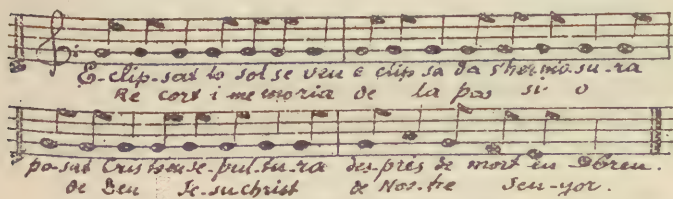 E-clip-sat lo sol se veu e clip sa da s'hermo-su-ra
Re cort i me moria de la pas si o
po-sat Crist en se-pul-tu-ra des-prés de mort en Obreu.
de Deu Je-suchrist de Nos-tre Sen-yor.